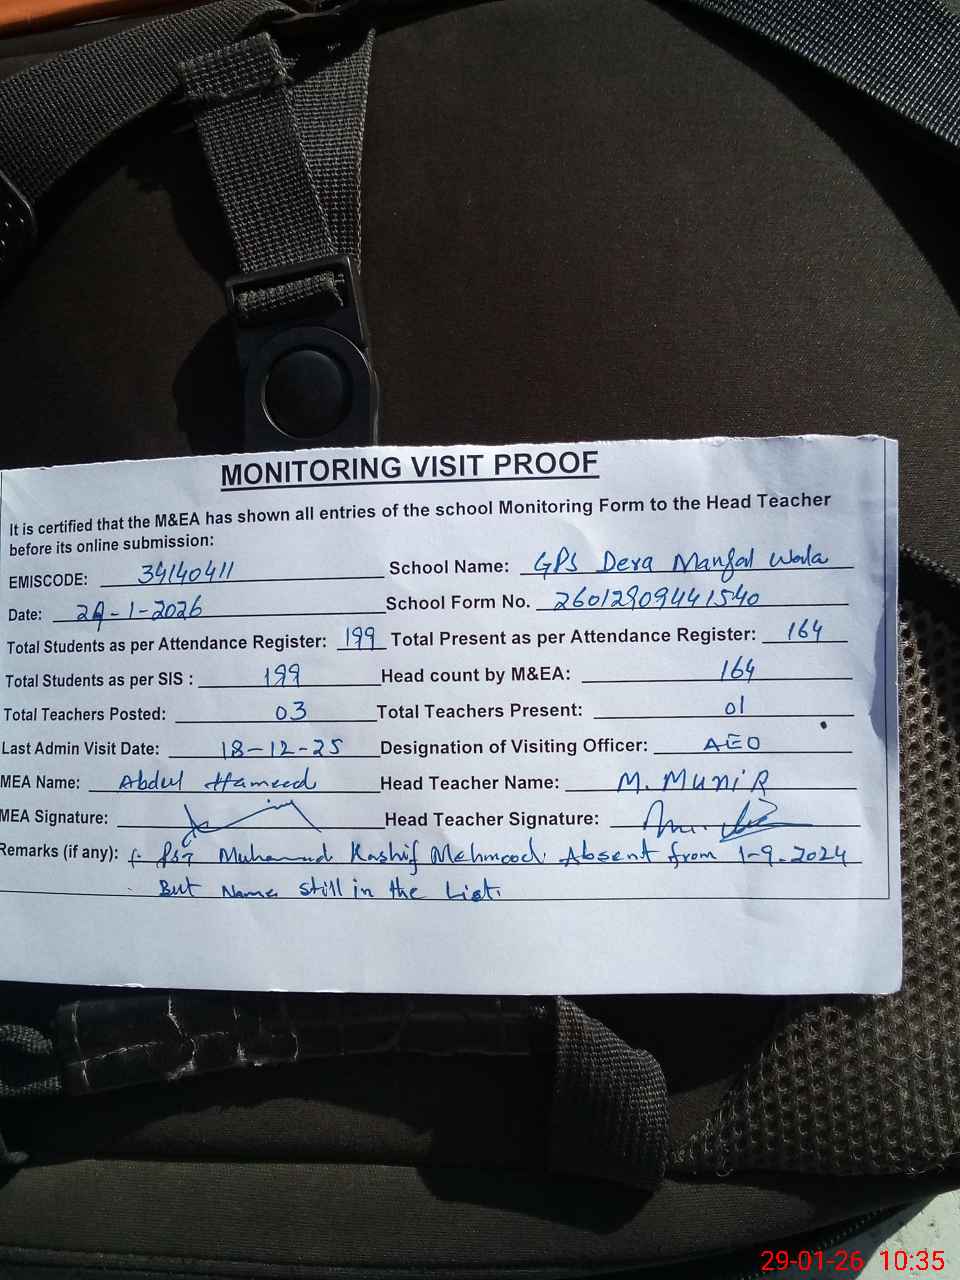 MONITORING VISIT PROOF
It is certified that the M&EA has shown all entries of the school Monitoring Form to the Head Teacher
before its online submission:
EMISCODE: 34140411 School Name: GPS Dera Manfal Wala
Date: 29-1-2026 School Form No. 26012909441540
Total Students as per Attendance Register: 199 Total Present as per Attendance Register: 164
Total Students as per SIS : 199 Head count by M&EA: 164
Total Teachers Posted: 03 Total Teachers Present: 01
Last Admin Visit Date: 18-12-25 Designation of Visiting Officer: AEO
MEA Name: Abdul Hameed Head Teacher Name: M. MuniR
MEA Signature: Head Teacher Signature:
Remarks (if any): PST Muhammad Kashif Mehmood Absent from 1-9-2024
But Name still in the List.
29-01-26 10:35